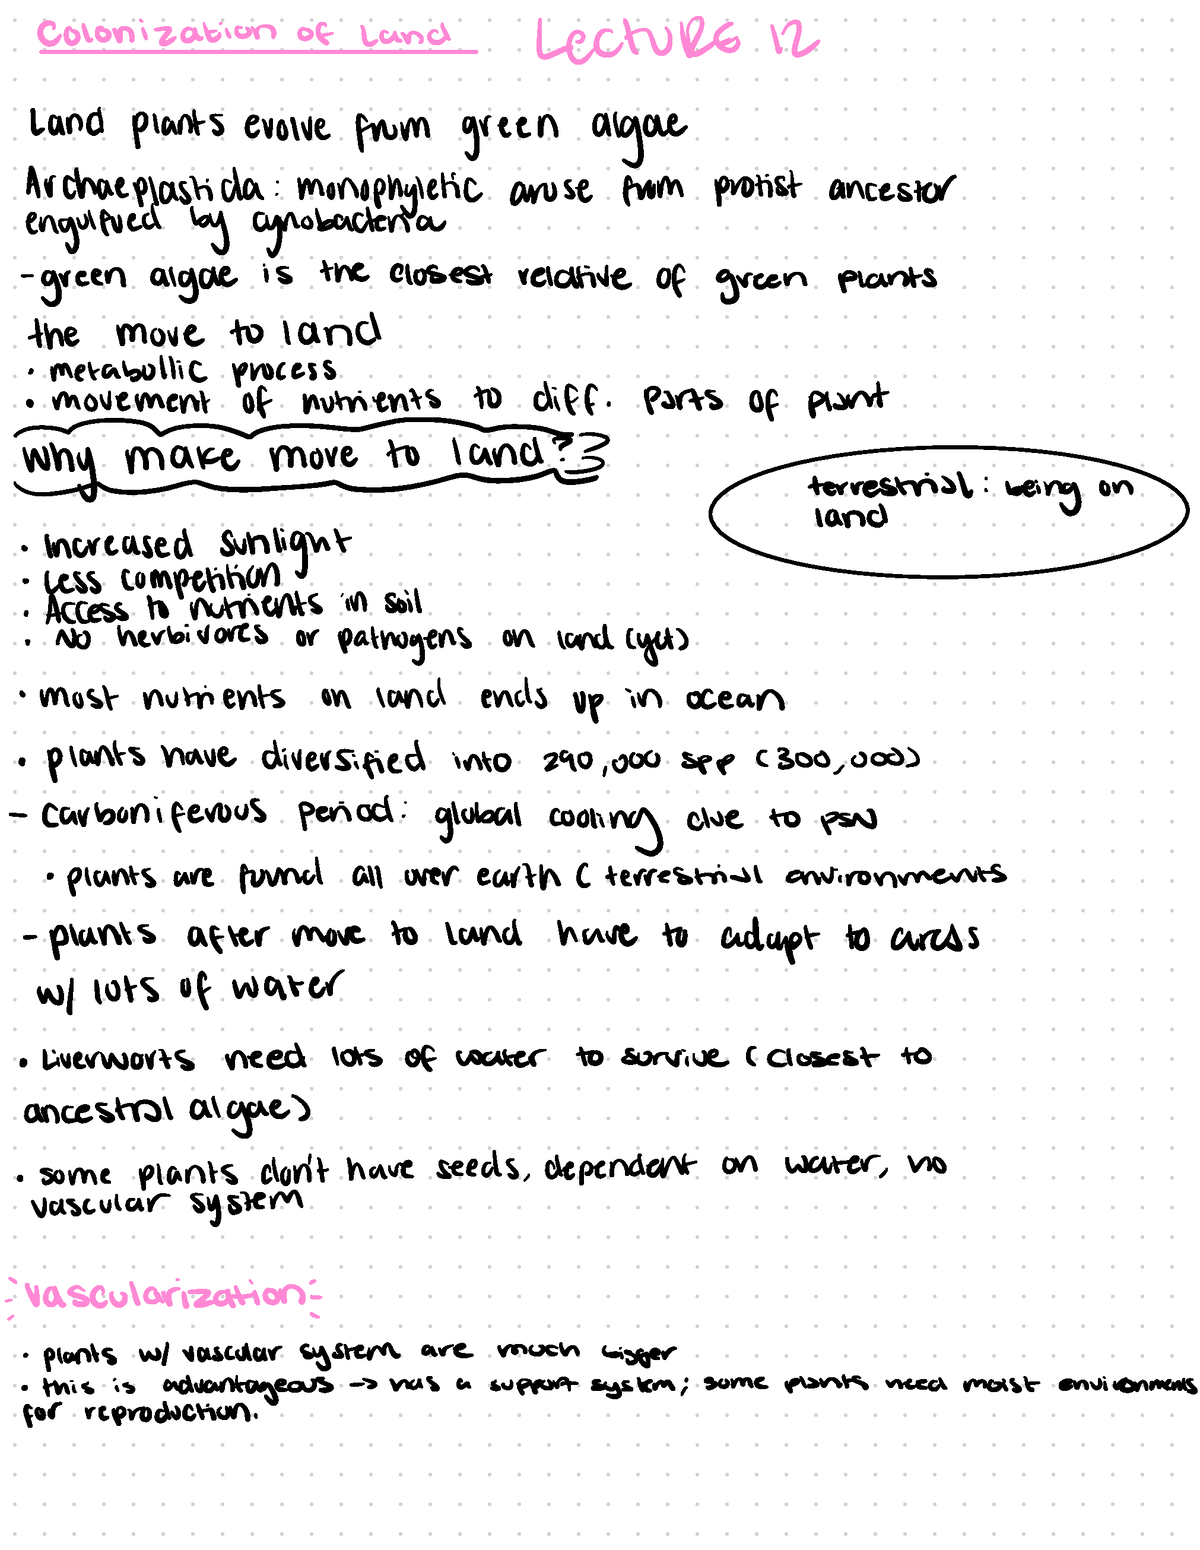 Colonization of Land LECTURE 12
Land plants evolve from green algae
Archaeplastida: monophyletic aruse from protist ancestor
engulfued by cynobacteria
- green algae is the closest relative of green plants
the move to land
• metabollic process
• movement of nutrients to diff. parts of plant
Why make move to land?
terrestrial: being on
land
• Increased sunlight
• Less competition
• Access to nutrients in soil
• No herbivores or pathogens on land (yet)
• most nutrients on land ends up in ocean
• plants have diversified into 290,000 spp (300,000)
- Carboniferous Period: global cooling due to PSN
• plants are found all over earth ( terrestrial environments
- plants after move to land have to adapt to areas
w/ lots of water
• Liverworts need lots of water to survive (closest to
ancestral algae)
• some plants don't have seeds, dependent on water, no
vascular system
Vascularization
• plants w/ vascular system are much bigger
• this is advantageous -> has a support system; some plants need moist environments
for reproduction.